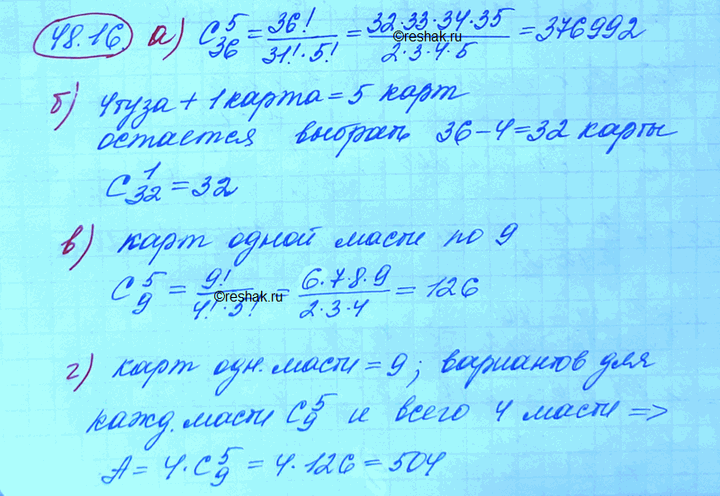 48.16 а) C⁵₃₆ = 36!/(31!·5!) = (32·33·34·35)/(2·3·4·5) = 376992
©reshak.ru
б) 4туза + 1 карта = 5 карт
остается выбрать 36-4=32 карты
C¹₃₂ = 32
в) карт одной масти по 9
C⁵₉ = 9!/(4!·5!) = (6·7·8·9)/(2·3·4) = 126
©reshak.ru
г) карт одн. масти = 9; вариантов для
кажд. масти C⁵₉ и всего 4 масти =>
A = 4·C⁵₉ = 4·126 = 504